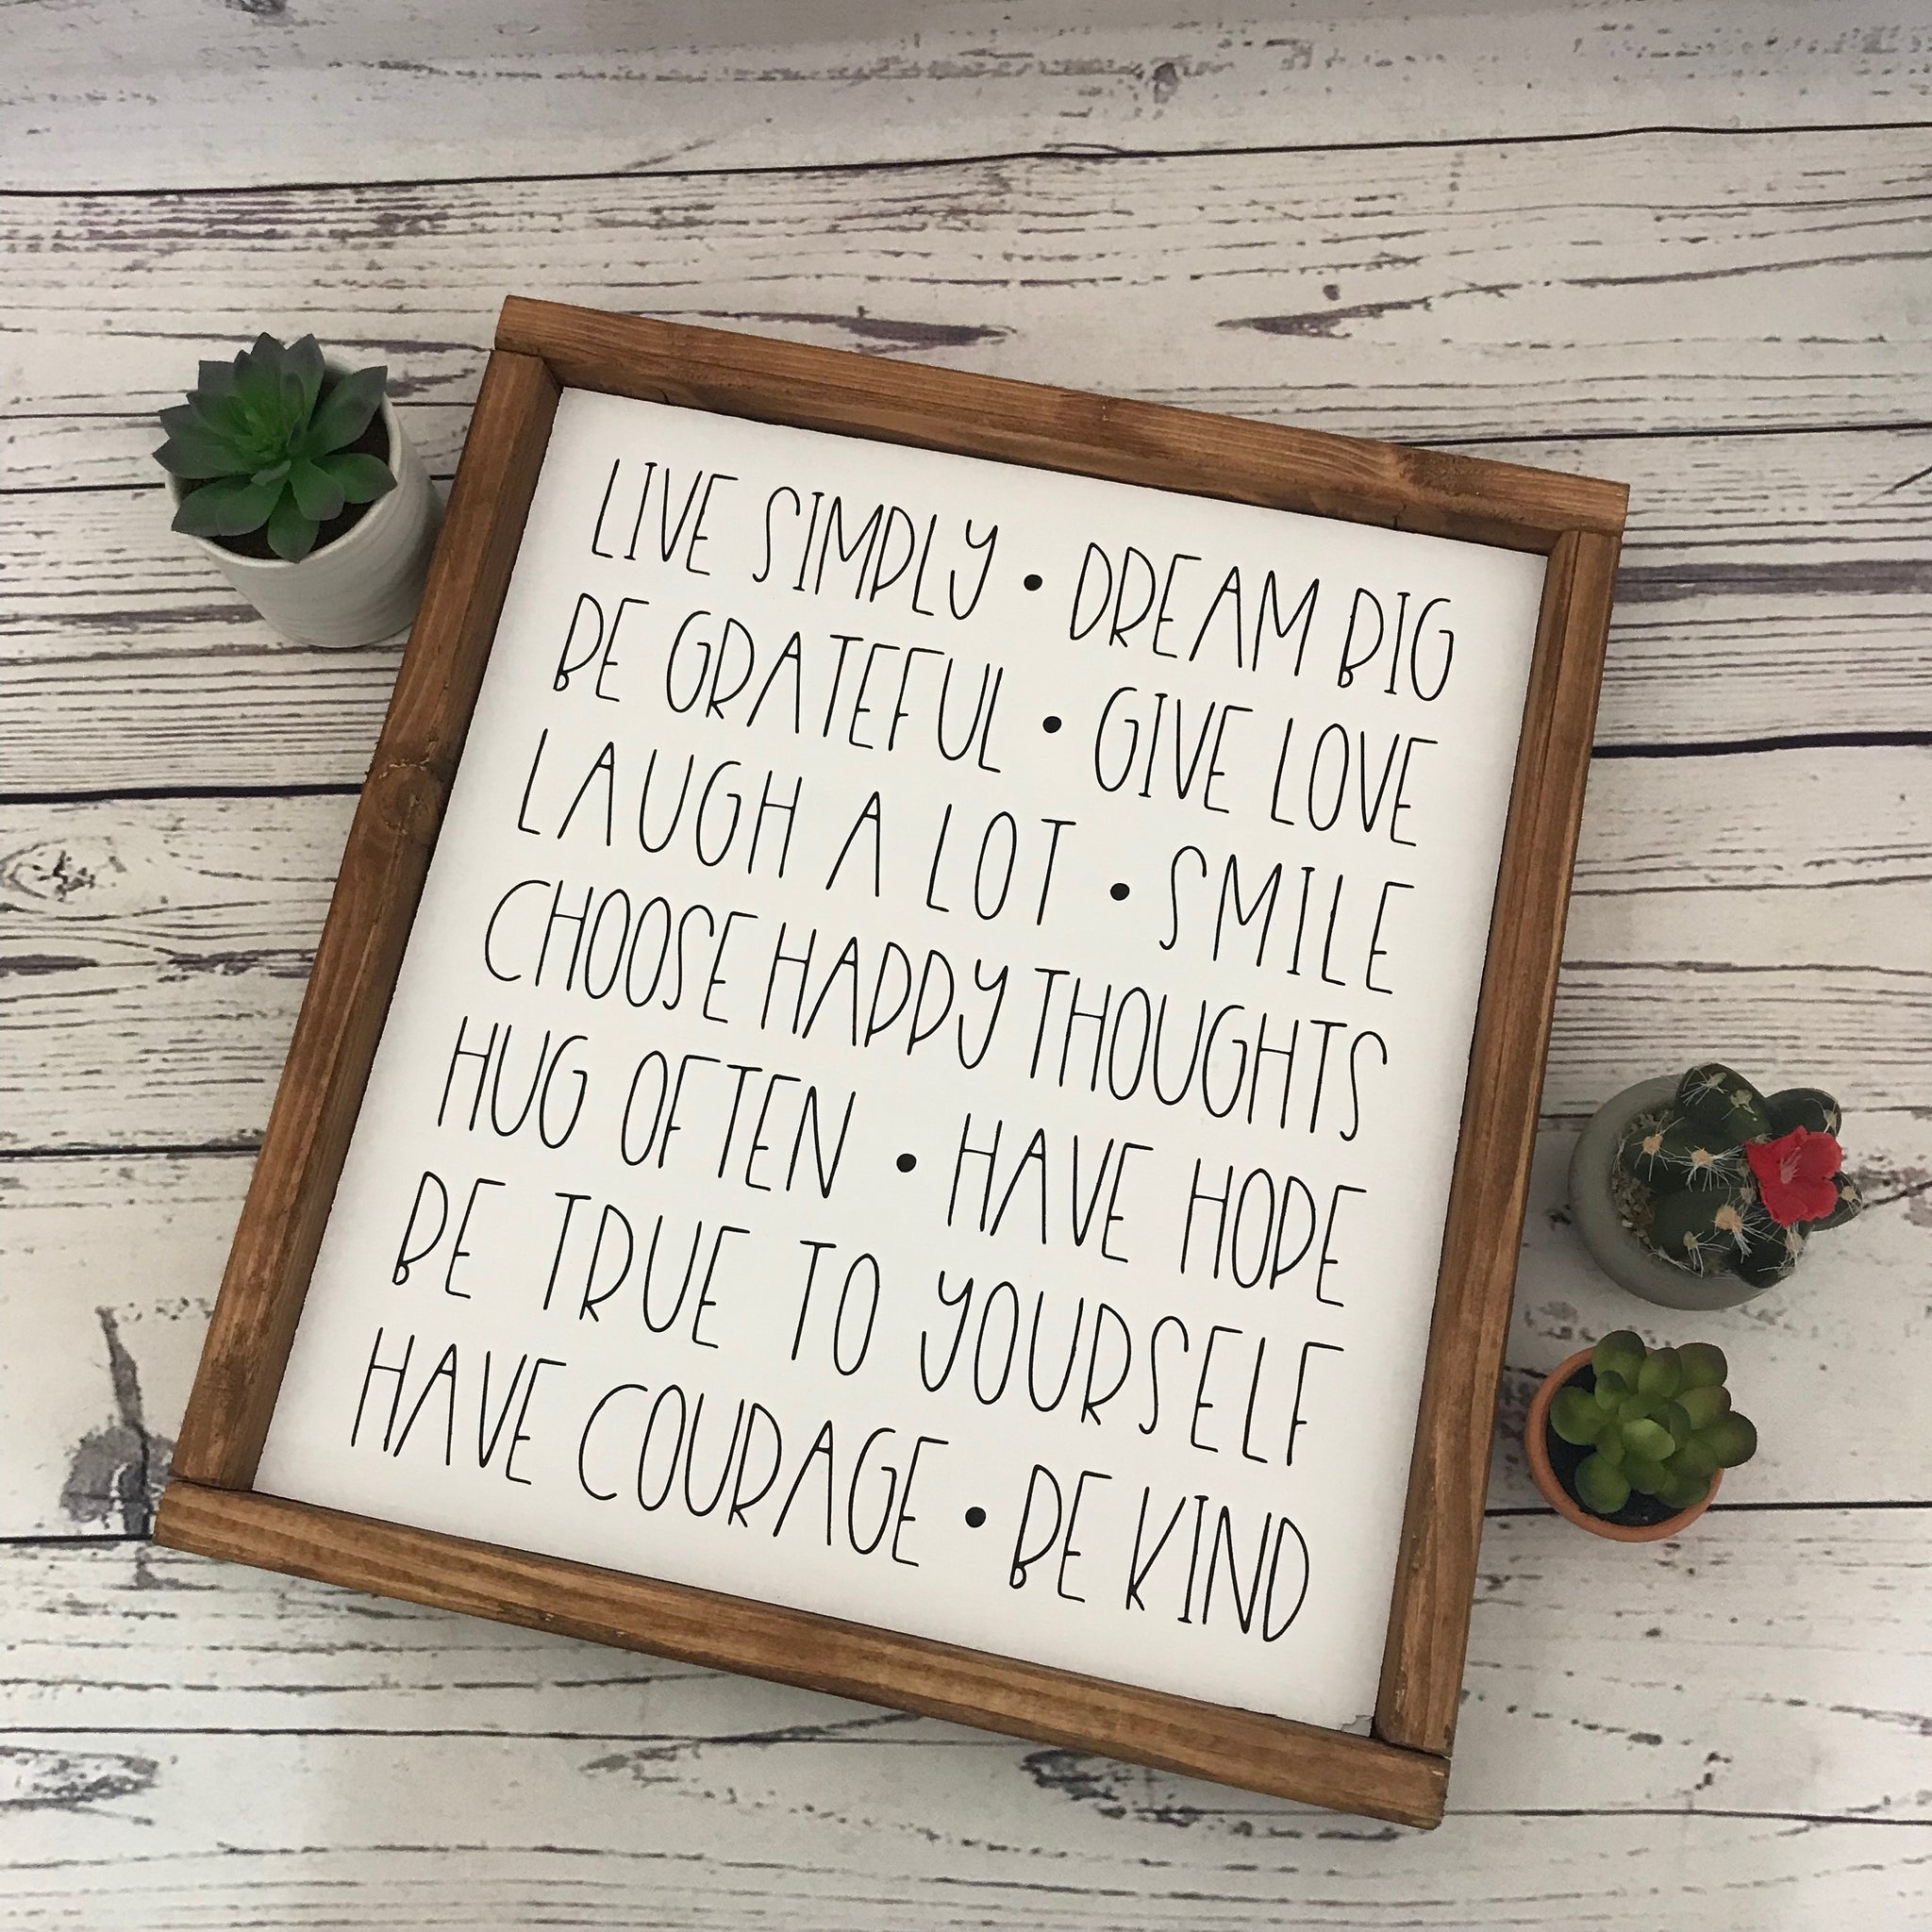 LIVE SIMPLY • DREAM BIG
BE GRATEFUL • GIVE LOVE
LAUGH A LOT • SMILE
CHOOSE HAPPY THOUGHTS
HUG OFTEN • HAVE HOPE
BE TRUE TO YOURSELF
HAVE COURAGE • BE KIND